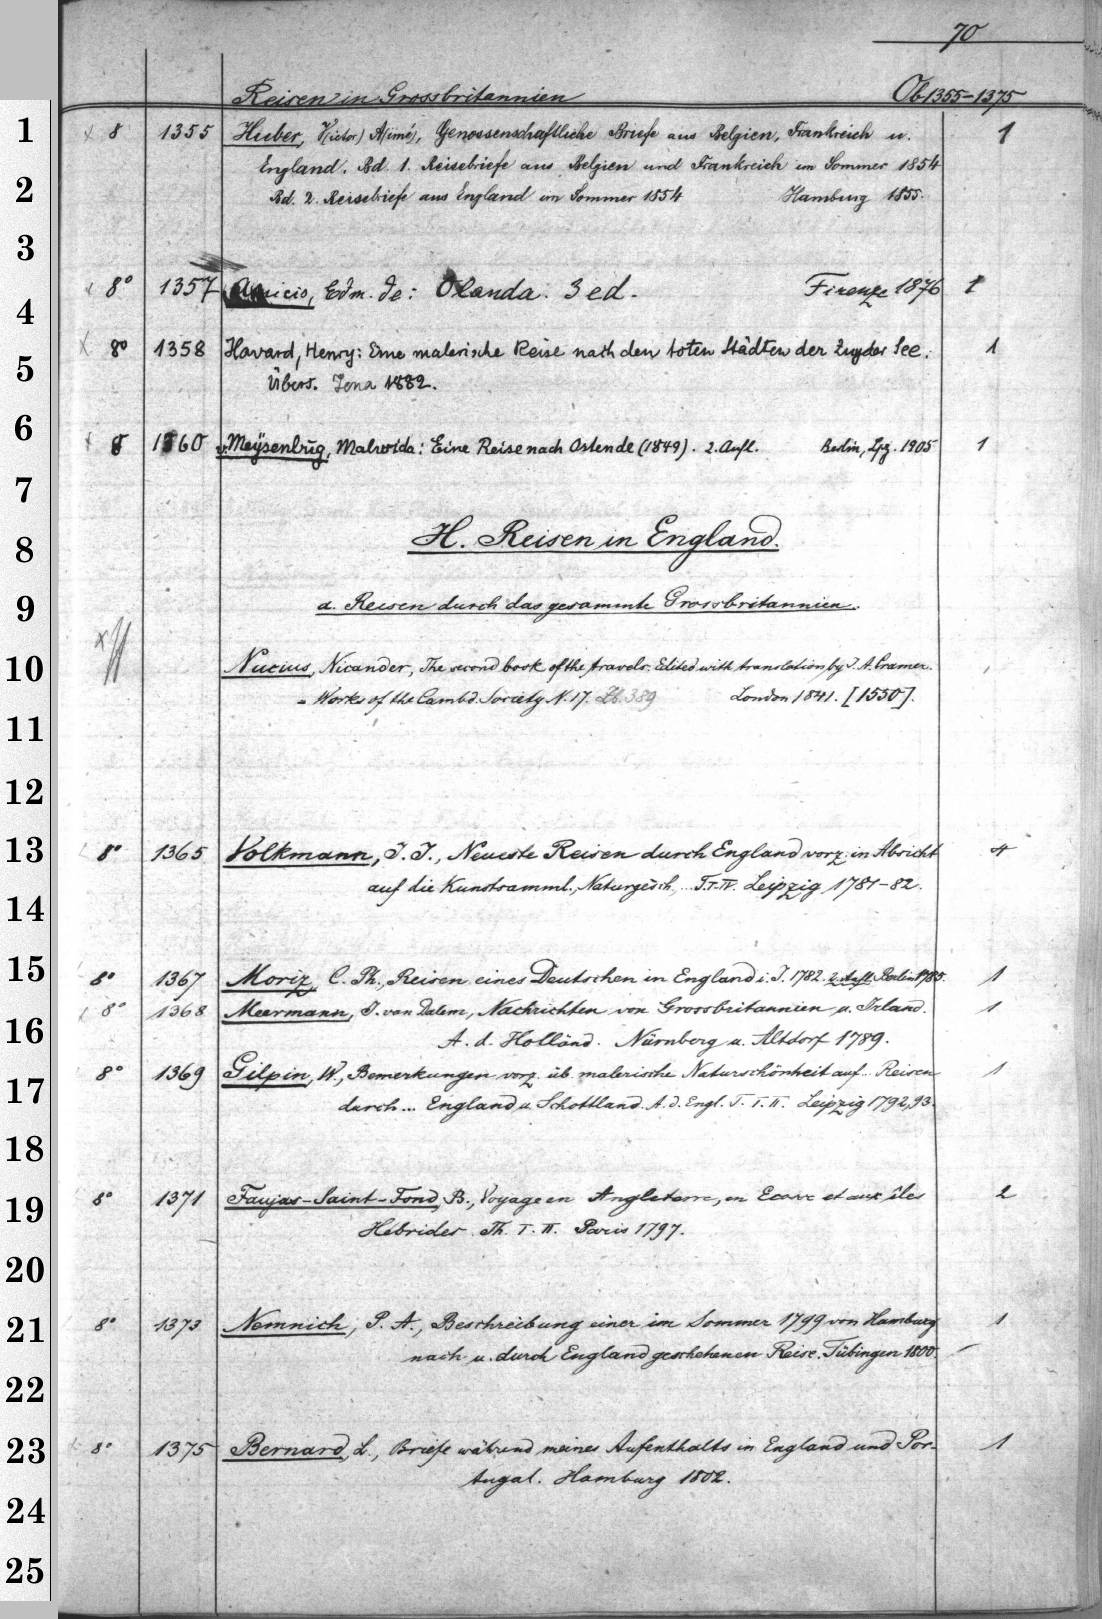 70
Reisen in Grossbritannien Ob 1355-1375
1 x 8 1355 Huber, V(ictor) A(imé), Genossenschaftliche Briefe aus Belgien, Frankreich u. 1
England. Bd. 1. Reisebriefe aus Belgien und Frankreich im Sommer 1854
2 Bd. 2. Reisebriefe aus England im Sommer 1854 Hamburg 1855.
3
8° 1357 Amicis, Edm. de: Olanda. 3 ed. Firenze 1876 1
4
x 8° 1358 Havard, Henry: Eine malerische Reise nach den toten Städten der Zuyder See. 1
5 Übers. Jena 1882.
6 x 8 1360 v. Meysenbug, Malwida: Eine Reise nach Ostende (1849). 2. Aufl. Berlin, Lpz. 1905 1
7
8 H. Reisen in England.
9 a. Reisen durch das gesammte Grossbritannien.
10 x Nucius, Nicander, The second book of the travels. Edited with translation by J. A. Cramer.
= Works of the Cambd. Society N. 17. 389 London 1841. [1550].
11
12
13 8° 1365 Volkmann, J. J., Neueste Reisen durch England vorz. in Absicht 4
auf die Kunstsamml., Naturgesch,... T.I-IV. Leipzig 1781-82.
14
15 8° 1367 Moriz, C. Ph., Reisen eines Deutschen in England i. J. 1782. 2. Aufl. Berlin 1785. 1
8° 1368 Meermann, J. van Dalem, Nachrichten von Grossbritannien u. Irland. 1
16 A. d. Holländ. Nürnberg u. Altdorf 1789.
8° 1369 Gilpin, W., Bemerkungen vorz. üb. malerische Naturschönheit auf... Reisen 1
17 durch... England u. Schottland. A. d. Engl. T. I. II. Leipzig 1792,93.
18
19 8° 1371 Faujas-Saint-Fond, B., Voyage en Angleterre, en Ecosse et aux îles 2
Hébrides. Th. I. II. Paris 1797.
20
21 8° 1373 Nemnich, P. A., Beschreibung einer im Sommer 1799 von Hamburg 1
nach u. durch England geschehenen Reise. Tübingen 1800.
22
23 8° 1375 Bernard, L., Briefe während meines Aufenthalts in England und Por- 1
tugal. Hamburg 1802.
24
25